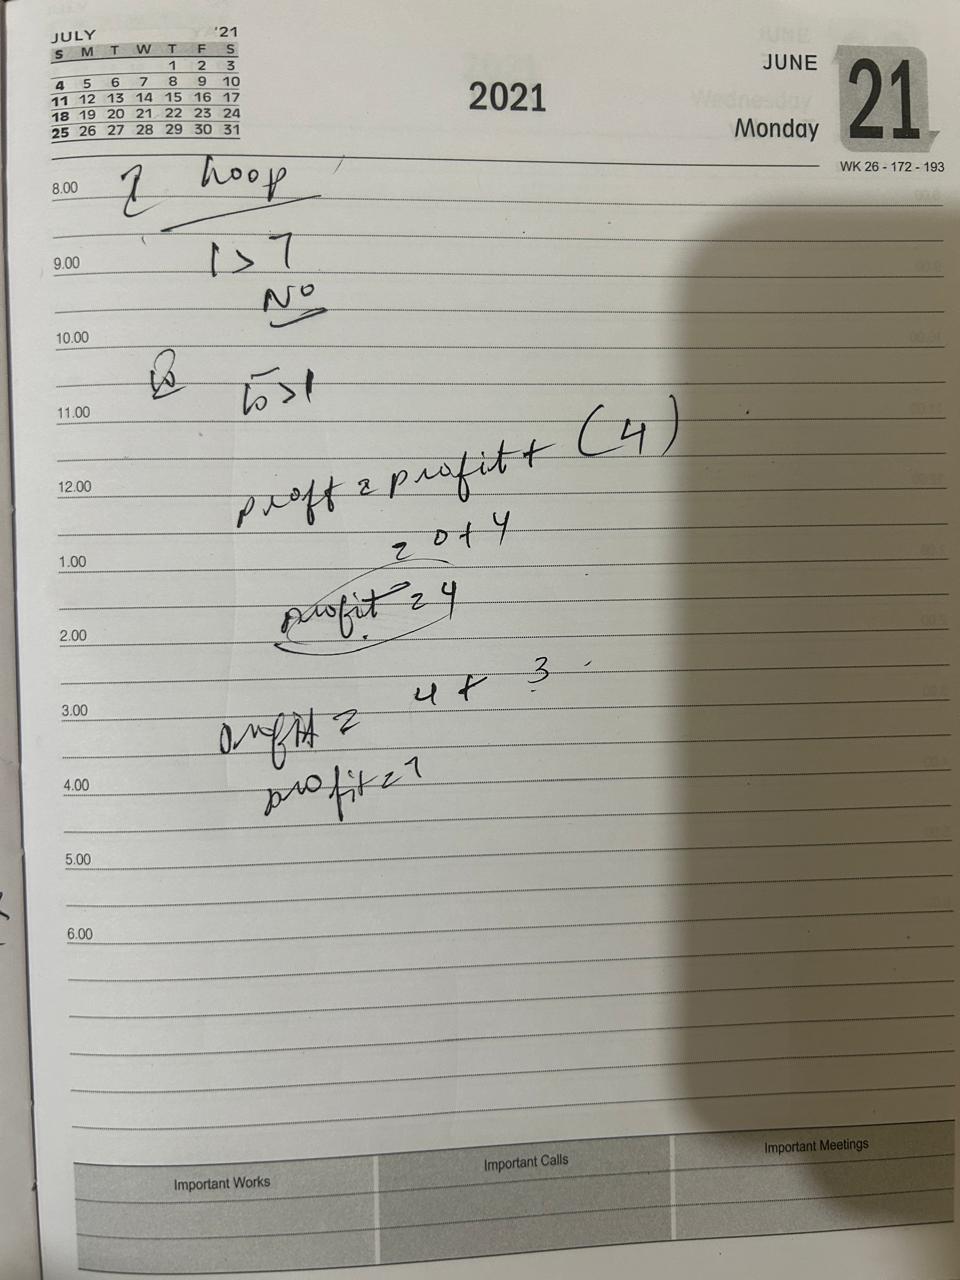 JULY '21
S M T W T F S
1 2 3
4 5 6 7 8 9 10
11 12 13 14 15 16 17
18 19 20 21 22 23 24
25 26 27 28 29 30 31
2021
JUNE
Monday
21
WK 26 - 172 - 193
8.00 Loop
9.00 1 > 7
No
10.00
5 > 1
11.00
profit = profit + (4)
12.00
= 0 + 4
1.00
profit = 4
2.00
4 + 3
3.00 profit =
profit = 7
4.00
5.00
6.00
Important Works
Important Calls
Important Meetings